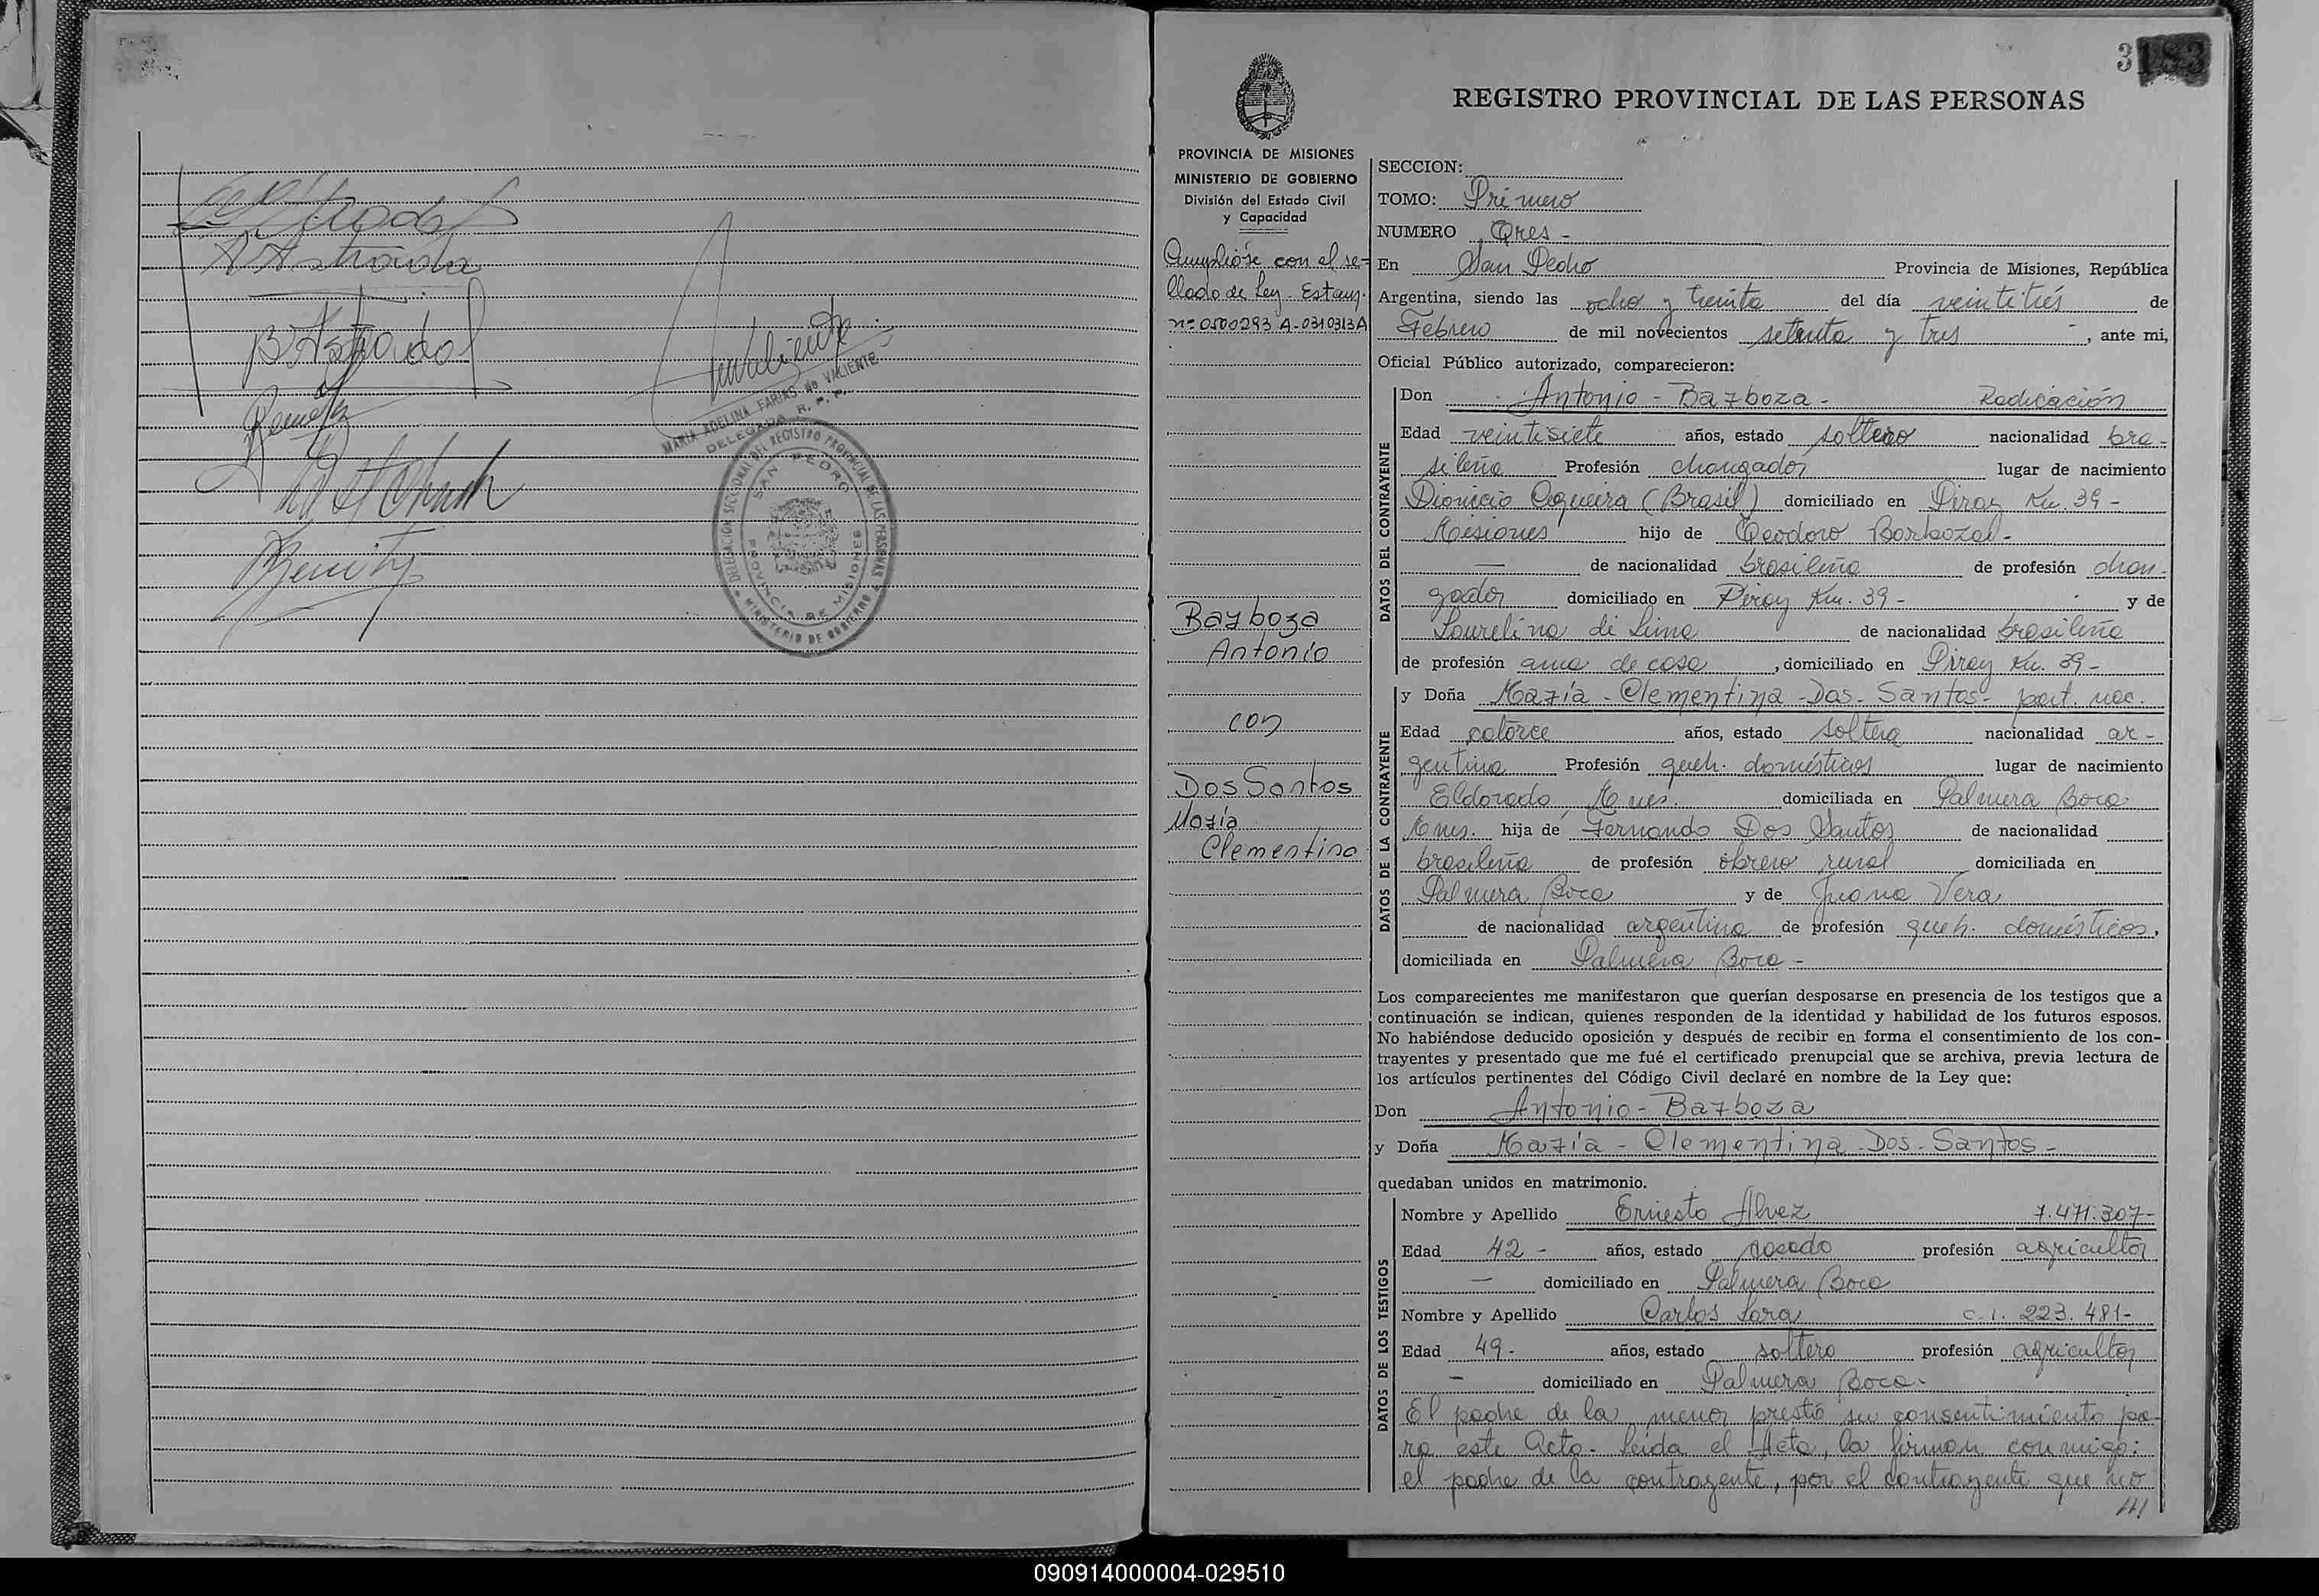 Astrada
B Astrada
Valiente
MARIA ADELINA FARIAS de VALIENTE
DELEGADA R. P. P.
DELEGACION SECCIONAL DEL REGISTRO PROVINCIAL DE LAS PERSONAS
SAN PEDRO
PROVINCIA DE MISIONES
MINISTERIO DE GOBIERNO
3 183
REGISTRO PROVINCIAL DE LAS PERSONAS
PROVINCIA DE MISIONES
MINISTERIO DE GOBIERNO
División del Estado Civil
y Capacidad
Cumplióse con el se-
llado de Ley. Estamp.
nº 0500293 A-0310313A
Barboza
Antonio
con
Dos Santos
María
Clementina
SECCION:
TOMO: Primero
NUMERO Tres -
En San Pedro Provincia de Misiones, República
Argentina, siendo las ocho y treinta del día veintitrés de
Febrero de mil novecientos setenta y tres -, ante mi,
Oficial Público autorizado, comparecieron:
DATOS DEL CONTRAYENTE
Don Antonio - Barboza - Radicación
Edad veintisiete años, estado soltero nacionalidad bra-
sileña Profesión changador lugar de nacimiento
Dionicio Cerqueira (Brasil) domiciliado en Piray Km. 39 -
Misiones hijo de Teodoro Barboza -
— de nacionalidad brasileña de profesión chan-
gador domiciliado en Piray Km. 39 - y de
Laurelina di Lima de nacionalidad brasileña
de profesión ama de casa, domiciliado en Piray Km. 39 -
DATOS DE LA CONTRAYENTE
y Doña María - Clementina - Dos - Santos - part. nac.
Edad catorce años, estado soltera nacionalidad ar-
gentina Profesión queh. domésticos lugar de nacimiento
Eldorado Mnes. domiciliada en Palmera Boca
Mnes. hija de Fernando Dos Santos de nacionalidad
brasileña de profesión obrero rural domiciliada en
Palmera Boca y de Juana Vera
de nacionalidad argentina de profesión queh. domésticos,
domiciliada en Palmera Boca -
Los comparecientes me manifestaron que querían desposarse en presencia de los testigos que a
continuación se indican, quienes responden de la identidad y habilidad de los futuros esposos.
No habiéndose deducido oposición y después de recibir en forma el consentimiento de los con-
trayentes y presentado que me fué el certificado prenupcial que se archiva, previa lectura de
los artículos pertinentes del Código Civil declaré en nombre de la Ley que:
Don Antonio - Barboza
y Doña María - Clementina - Dos - Santos -
quedaban unidos en matrimonio.
DATOS DE LOS TESTIGOS
Nombre y Apellido Ernesto Alvez 7.471.307-
Edad 42 - años, estado casado profesión agricultor
— domiciliado en Palmera Boca
Nombre y Apellido Carlos Lara C.I. 223.481-
Edad 49 - años, estado soltero profesión agricultor
- domiciliado en Palmera Boca -
El padre de la menor prestó su consentimiento pa-
ra este Acto. Leída el Acta, la firman conmigo:
el padre de la contrayente, por el contrayente que no
///
090914000004-029510